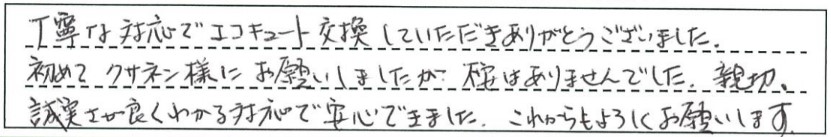 丁寧な対応でエコキュート交換していただきありがとうございました.
初めてクサネン様にお願いしましたが はありませんでした. 親切、
誠実さが良くわかる対応で安心できました. これからもよろしくお願いします